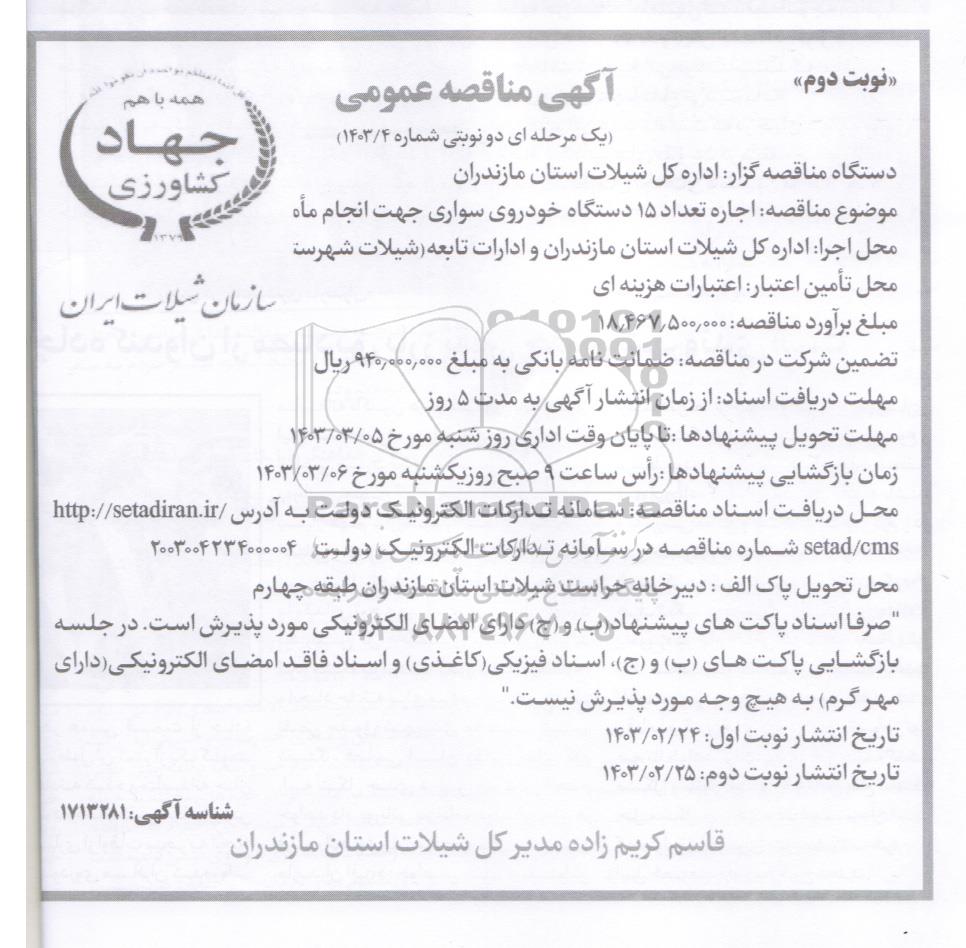 «نوبت دوم»
آگهی مناقصه عمومی
(یک مرحله ای دو نوبتی شماره ۱۴۰۳/۴)
همه با هم
جهاد
کشاورزی
۱۳۷۹
سازمان شیلات ایران
دستگاه مناقصه گزار: اداره کل شیلات استان مازندران
موضوع مناقصه: اجاره تعداد ۱۵ دستگاه خودروی سواری جهت انجام مأ
محل اجرا: اداره کل شیلات استان مازندران و ادارات تابعه(شیلات شهرست
محل تأمین اعتبار: اعتبارات هزینه ای
مبلغ برآورد مناقصه: ۱۸٫۴۶۷٫۵۰۰٫۰۰۰
تضمین شرکت در مناقصه: ضمانت نامه بانکی به مبلغ ۹۴۰٫۰۰۰٫۰۰۰ ریال
مهلت دریافت اسناد: از زمان انتشار آگهی به مدت ۵ روز
مهلت تحویل پیشنهادها :تا پایان وقت اداری روز شنبه مورخ ۱۴۰۳/۰۳/۰۵
زمان بازگشایی پیشنهادها :رأس ساعت ۹ صبح روزیکشنبه مورخ ۱۴۰۳/۰۳/۰۶
محل دریافت اسناد مناقصه: سامانه تدارکات الکترونیک دولت به آدرس http://setadiran.ir/
setad/cms شماره مناقصه در سامانه تدارکات الکترونیک دولت ۲۰۰۳۰۰۴۲۳۴۰۰۰۰۰۴
محل تحویل پاک الف : دبیرخانه حراست شیلات استان مازندران طبقه چهارم
"صرفا اسناد پاکت های پیشنهاد(ب) و (ج) دارای امضای الکترونیکی مورد پذیرش است. در جلسه
بازگشایی پاکت های (ب) و (ج)، اسناد فیزیکی(کاغذی) و اسناد فاقد امضای الکترونیکی(دارای
مهر گرم) به هیچ وجه مورد پذیرش نیست."
تاریخ انتشار نوبت اول: ۱۴۰۳/۰۲/۲۴
تاریخ انتشار نوبت دوم: ۱۴۰۳/۰۲/۲۵
شناسه آگهی: ۱۷۱۳۲۸۱
قاسم کریم زاده مدیر کل شیلات استان مازندران
ParsNamadData